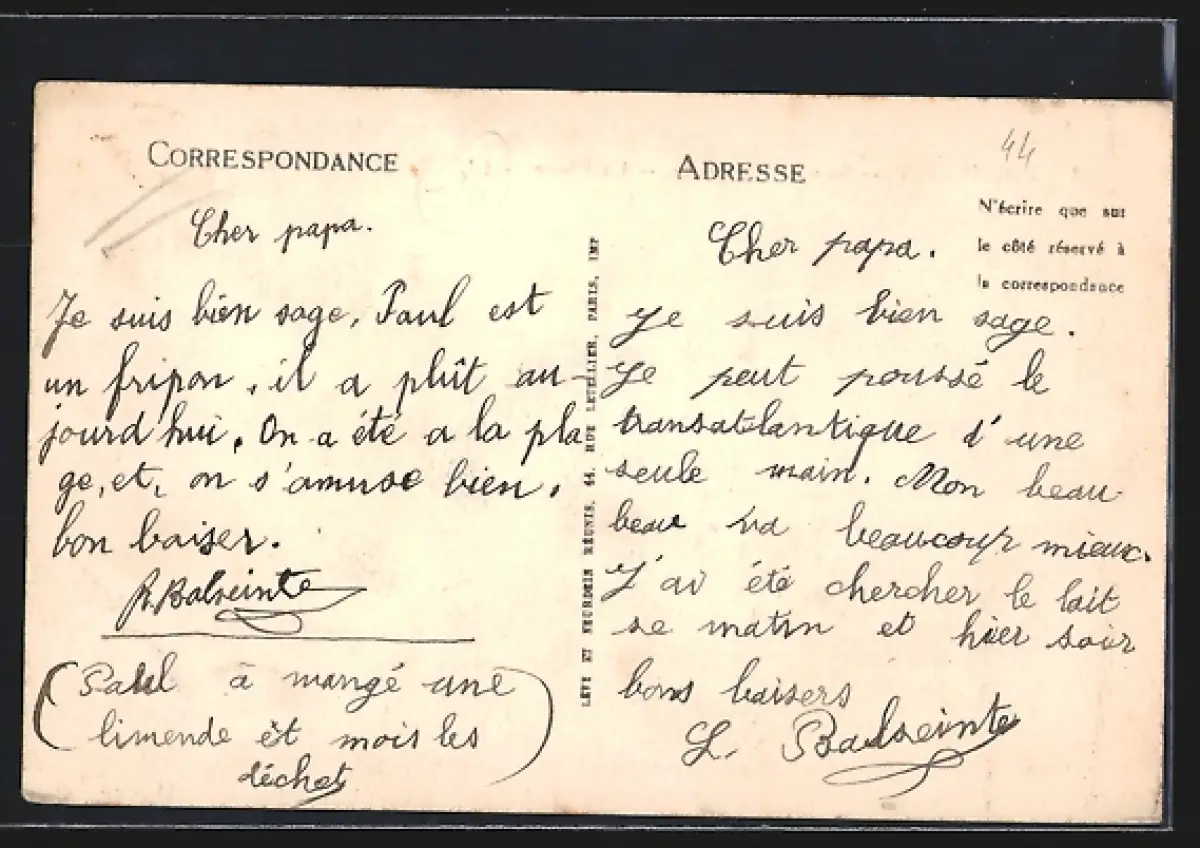 CORRESPONDANCE
Cher papa.
Je suis bien sage, Paul est
un fripon, il a plût au-
jourd'hui. On a été a la pla
ge, et, on s'amuse bien,
bon baiser.
R. Balseinte
(Paul à mangé une
limende èt mois les
déchet)
LÉVY ET NEURDEIN RÉUNIS, 44, RUE LETELLIER, PARIS, IMP
ADRESSE
44
N'écrire que sur
le côté réservé à
la correspondance
Cher papa.
Je suis bien sage.
Je peut poussé le
transatlantique d'une
seule main. Mon beau
beau va beaucoup mieux.
J'ai été chercher le lait
se matin et hier soir
bons baisers
L. Balseinte